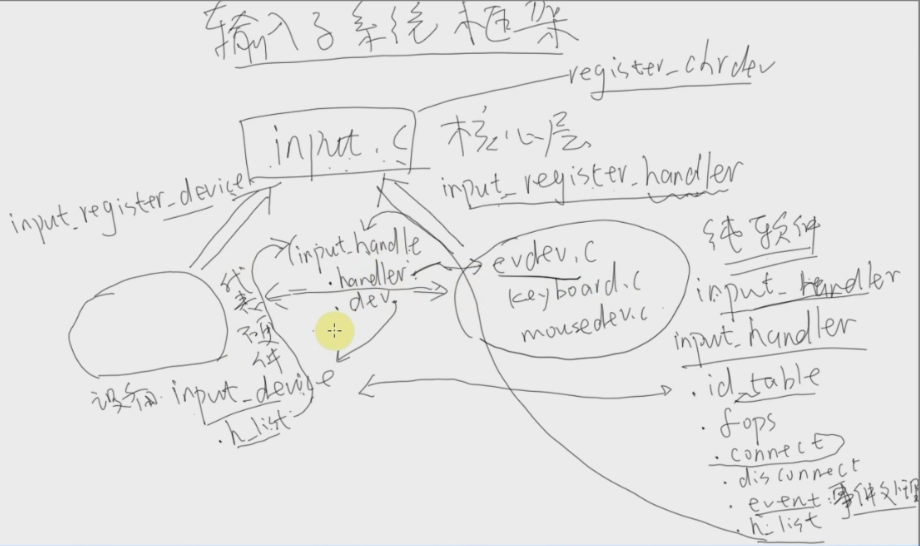 输入子系统框架
register_chrdev
input.c 核心层
input_register_device
input_register_handler
input_handle
.handler
.dev
代表硬件
evdev.c
keyboard.c
mousedev.c
纯软件
input_handler
input_handler
设备 input_device
.h_list
.id_table
.fops
.connect
.disconnect
.event:事件处理
.h_list